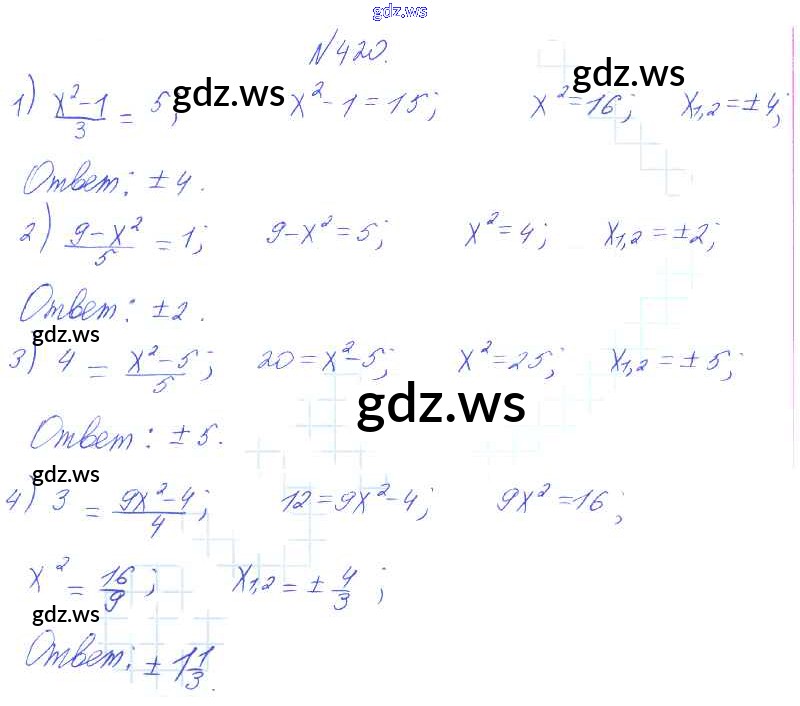 gdz.ws
№420.
gdz.ws gdz.ws
1) (x²-1)/3 = 5; x²-1=15; x²=16; x₁,₂=±4;
Ответ: ±4.
2) (9-x²)/5 = 1; 9-x²=5; x²=4; x₁,₂=±2;
Ответ: ±2.
gdz.ws
3) 4 = (x²-5)/5; 20=x²-5; x²=25; x₁,₂=±5;
gdz.ws
Ответ: ±5.
gdz.ws
4) 3 = (9x²-4)/4; 12=9x²-4; 9x²=16;
x² = 16/9; x₁,₂=±4/3;
gdz.ws
Ответ: ±1 1/3.